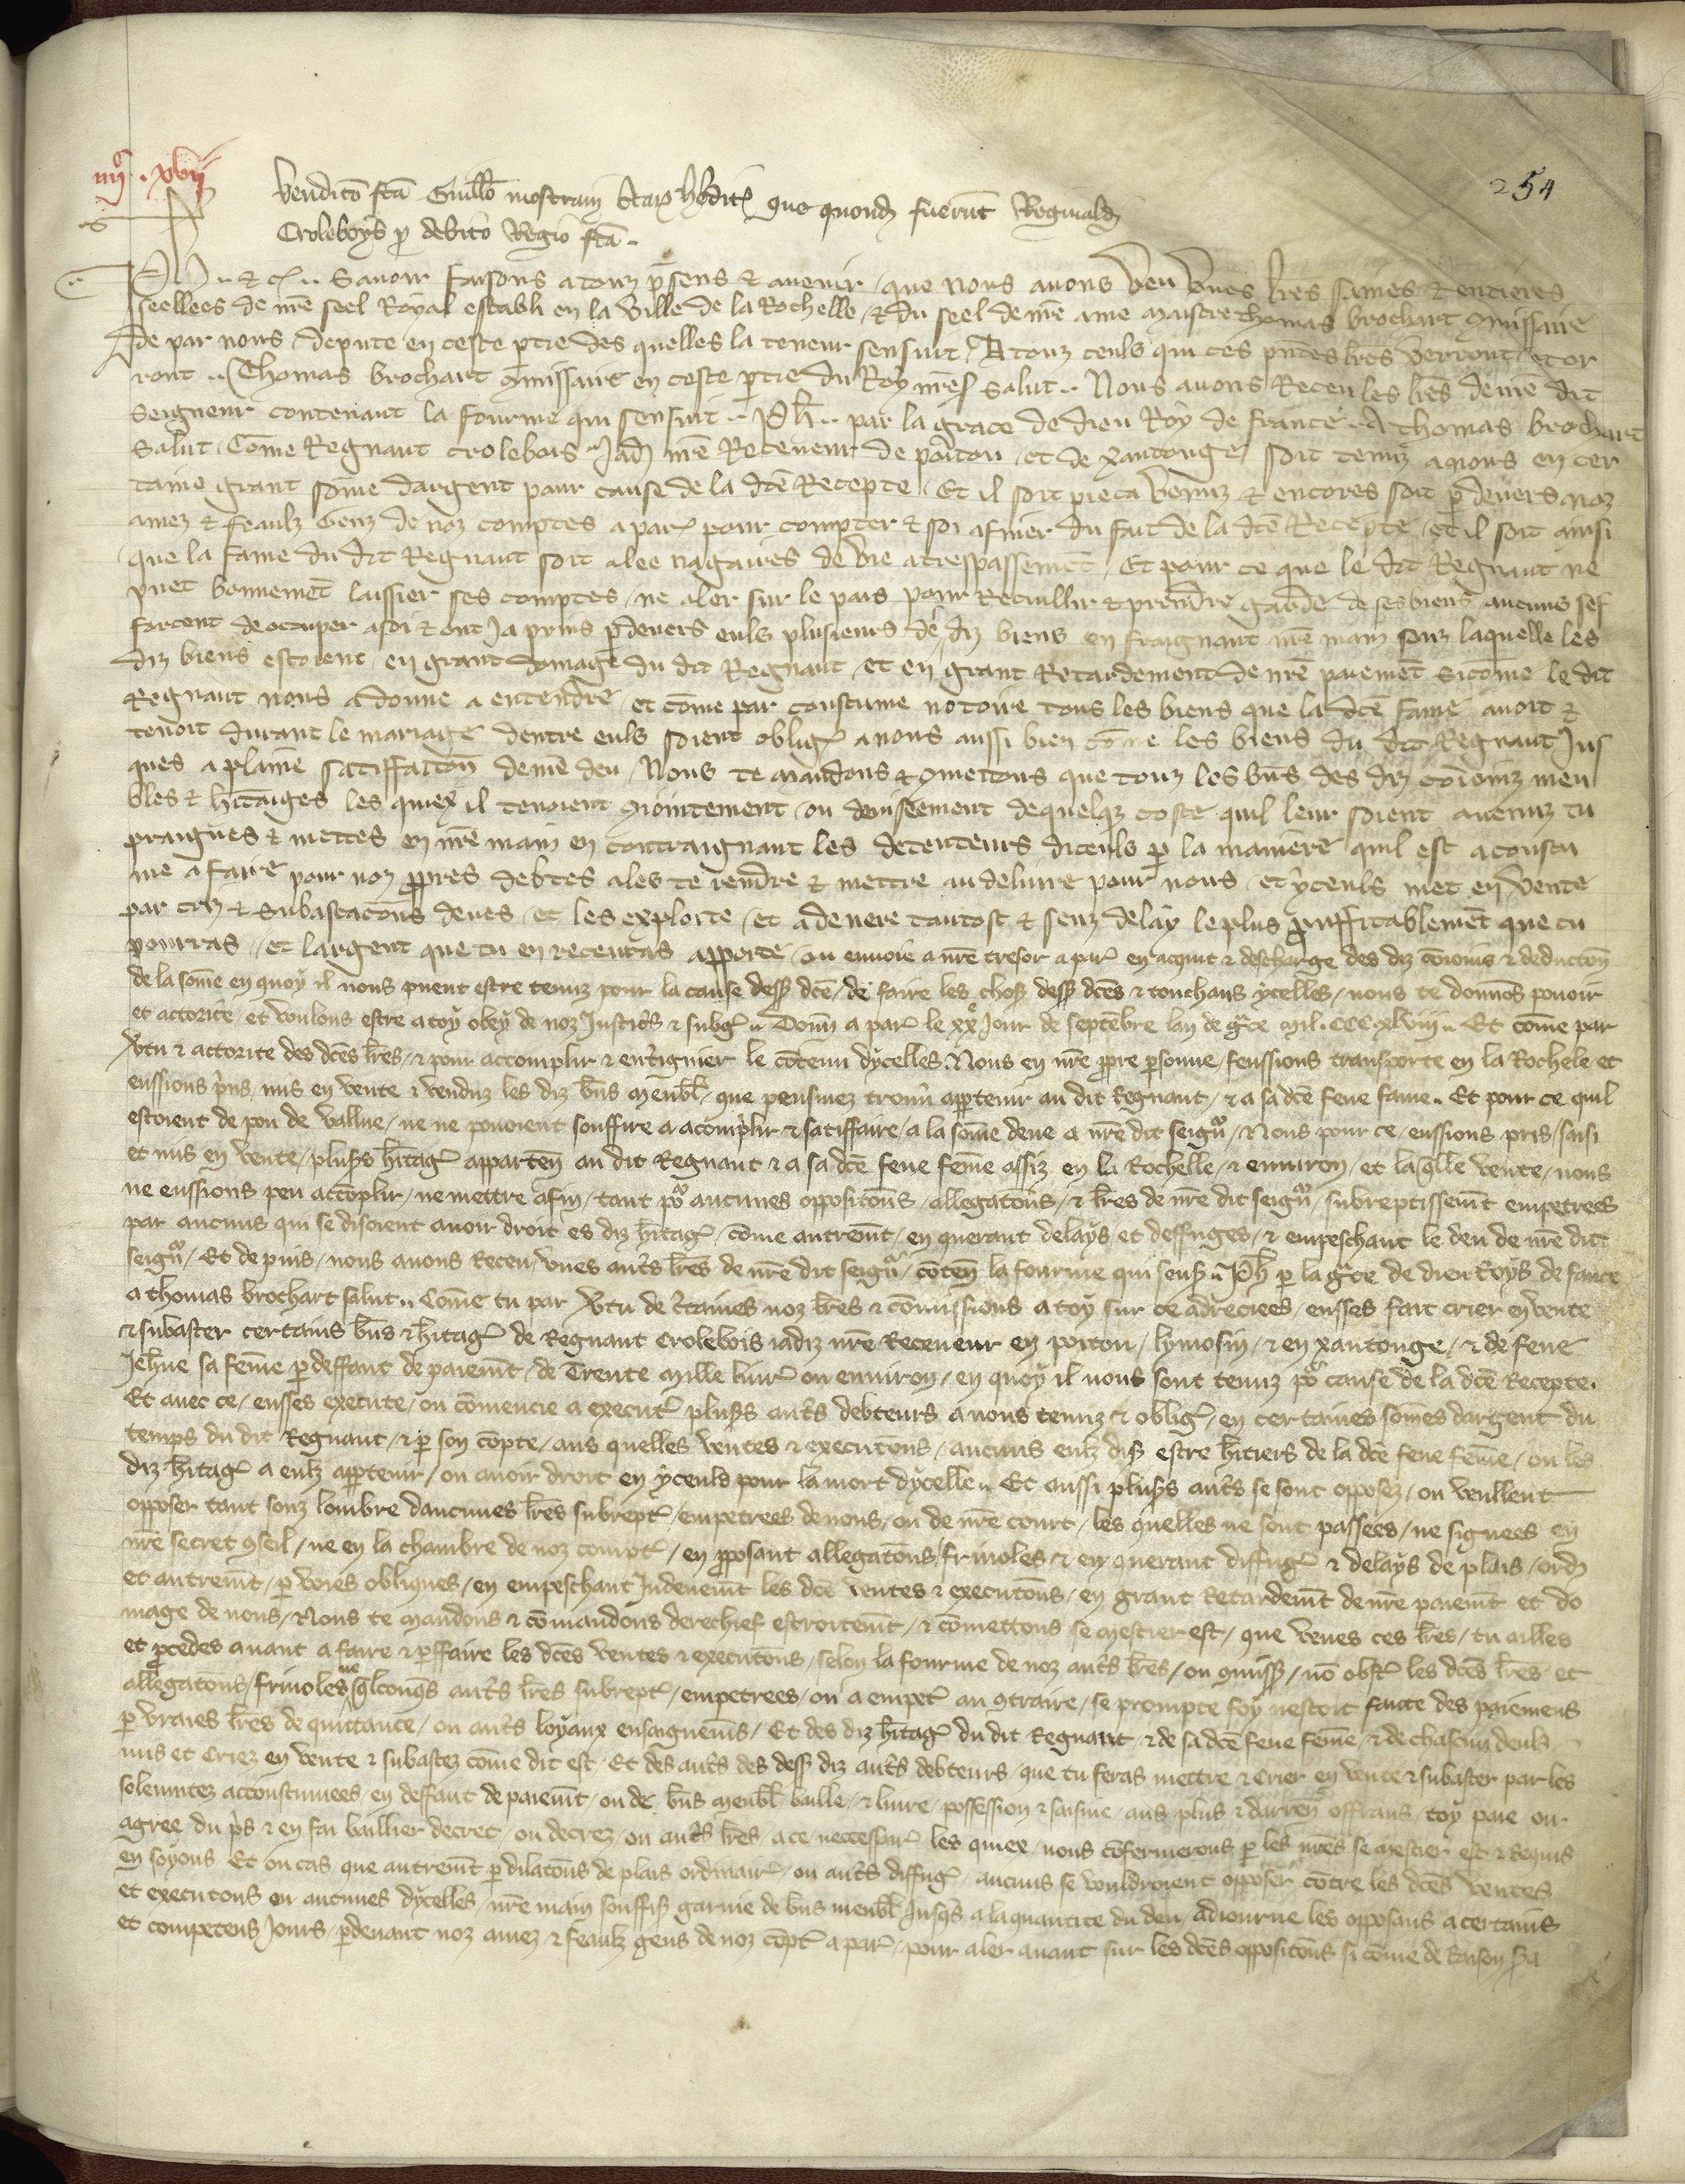 iiiiᶜ. xvii
254
Vendicõ fcã Guill̃o mostraui
Croleboys p debito Regio fcã.
Ph .. & c̃ .. Sauoir faisons a touz p̃sens & auenir / que nous auons veu vnes l̃res saines & entieres
seellees de nr̃e seel Royal establi en la ville de la Rochelle / & du seel de nr̃e ame maistre thomas brochart ꝯmissaire
de par nous depute en ceste ptie des quelles la teneur sensuit / A touz ceuls qui ces pñtes l̃res verront et or
ront .. Thomas brochart ꝯmissaire en ceste ptie du Roy nr̃e s̃ salut .. Nous auons Receu les l̃res de nr̃e dit
Seigneur contenant la fourme qui sensuit .. Ph̃ .. par la grace de dieu Roy de france .. A thomas brochart
Salut / Cõme Regnaut crolebois Jadiz nr̃e Receueur de poitou / et de xantonge / soit tenuz a nous en cer
taine grant sõme dargent pour cause de la dc̃e Recepte / Et il soit pieca venuz & encores soit p deuers noz
amez & feaulz Genz de noz comptes a par̃ pour compter & soi afiner du fait de la dc̃e Recepte / et il soit ainsi
que la fame du dit Regnaut soit alee nagaires de vie a trespassement / Et pour ce que le dit Regnaut ne
puet bonnemẽt laissier ses comptes / ne aler sur le pais pour Recuillir & prendre garde de ses biens aucuns sef
forcent de occuper a soi & ont Ja prins p deuers euls plusieurs des diz biens en fraignant nr̃e main souz laquelle les
diz biens estoient / en grant domage du dit Regnaut / et en grant Retardement de nr̃e paiemẽt Si cõme le dit
Regnaut nous a donne a entendre / et cõme par coustume notoire tous les biens que la dc̃e fame auoit &
tenoit durant le mariage dentre euls soient oblig̃ a nous aussi bien cõme les biens du dit Regnaut Jus
ques a plaine satiffaction de nr̃e deu / Nous te mandons & ꝯmettons que touz les bñs des diz cõioinz meu
bles & h̃itaiges les quiex il tenoient ꝯiointement / ou deuiseement de quelqz coste quil leur soient auenuz tu
praignes & mettes en nr̃e main en contraignant les detenteurs diceuls p la maniere quil est acoustu
me a faire pour noz ppres debtes a les te rendre & mettre au deliure pour nous / et yceuls met en vente
par criz & subastacõns deues / et les exploite / et adenere tantost & senz delay le plus pruffitablemẽt que tu
pourras / et largent que tu en receuras apporte / ou enuoie a nr̃e tresor a par̃ en acquit & descharge des diz cõioins & deducciõn
de la sõme en quoy il nous puent estre tenuz pour la cause dess dc̃e / de faire les chos dess dc̃es & touchans ycelles / nous te donnõs pouoir
et actorite / et voulons estre a toy obey de noz Justic̃s & subg̃ .. Donñ a par̃ le xxᵉ Jour de septẽbre lan de gr̃ce mil. CCC. xlviii .. Et cõme par
v̾tu & actorite des dc̃es l̃res / & pour accomplir & ent̾igniier le cõtenu dycelles. Nous en nr̃e ppre psonne / feussions transporte en la Rochele et
eussions p̃ns, mis en vente & venduz les diz bñs meub̃l / que peusmez trouu̾ appteuir au dit Regnaut / & a sa dc̃e feue fame .. Et pour ce quil
estoient de pou de vallue / ne ne pouoient souffire a acõplir & satiffaire / a la sõme deue a nr̃e dit seigñ / Nous pour ce / eussions pris / saisi
et mis en vente / pluss̃ h̃itag̃ apparteñ au dit Regnaut & a sa dc̃e feue feme assiz en la Rochelle / & enuiron / et laq̃lle vente / nous
ne eussions peu accõplir / ne mettre a fin / tant po᷑ aucunes opposicõns / allegacõns / & l̃res de nr̃e dit seigñ / subreptissemẽt empetrees
par aucuns qui se disoient auoir droit es diz h̃itag̃ / cõme autremẽt / en querant delays et deffuges / & empeschant le deu de nr̃e dit
seigñ / Et depuis / nous auons Receu vnes aut̾s l̃res de nr̃e dit seigñ / cõteñ la fourme qui sens̃ .. Ph̃ p la gr̃ce de dieu Roys de france
a thomas brochart salut .. Cõme tu par v̾tu de c̾taines noz l̃res & cõmissions a toy sur ce adreciees / eusses fait crier en vente
& subaster certains bñs & h̃itag̃ de Regnaut Crolebois iadiz nr̃e Receueur en poitou / lymosin / & en xantonge / & de feue
Jeh̃ne sa feme p deffaut de paiemẽt / de Trente mille liur̃ ou enuiron / en quoy il nous sont tenuz po᷑ cause de la dc̃e Recepte.
Et auec ce / eusses execute / ou cõmencie a execut̾ pluss̃ aut̾s debteurs a nous tenuz & oblig̃ / en certaines sõmes dargent du
temps du dit Regnaut / & p son cõpte / aus quelles ventes & execucõns / aucuns eulz dis̃ estre h̃itiers de la dc̃e feue feme / ou les
diz h̃itag̃ a eulz appteuir / ou auoir droit en yceuls pour la mort dycelle .. Et aussi pluss̃ aut̾s se sont opposez / ou veullent
opposer tant souz lombre daucunes l̃res subrept̃ / empetrees de nous / ou de nr̃e court / les quelles ne sont passees / ne signees en
nr̃e secret ꝯseil / ne en la chambre de noz compt̃ / en pposant allegacõns friuoles & en querant diffug̃ & delays de plais / ordꝭ
et autremẽt / p voies obliques / en empeschant Jndeuemẽt les dc̃es ventes & execucõns / en grant Retardemẽt de nr̃e paiemẽt et do
mage de nous / Nous te mandons & cõmandons derechief estroitemẽt / & cõmettons se mestier est / que veues ces l̃res / tu ailles
et pcedes auant a faire & pffaire les dc̃es ventes & execucõns / selon la fourme de noz aut̾s l̃res / ou ꝯmiss̃ / nõ obst̃ les dc̃es l̃res et
allegacõns / friuoles ne q̃lconq̃s aut̾s l̃res subrept̃ / empetrees / ou a empet̾ au ꝯtraire / se prompte foy nestoit faicte des paiemens
p vraies l̃res de quittance / ou aut̾s loyaux ensaignemẽs / Et des diz h̃itag̃ du dit Regnaut & de sa dc̃e feue feme / & de chascun deuls
mis et criez en vente & subastez cõme dit est / Et des aut̾s des dess diz aut̾s debteurs / que tu feras mettre & crier en vente & subaster par les
solemnitez accoustumees / en deffaut de paiemẽt / ou de bñs meub̃l baille / & liure / possession & saisine / aus plus & darreñ offrans / toy paie ou
agree du p̃s & en fai baillier decret / ou decrez / ou aut̾s l̃res a ce neccessair̃ les quiex / nous cõfermerons p les nr̃es se mestier est & Requis
en soyons Et ou cas que autremẽt p dilacõns de plais ordinair̃ / ou aut̾s diffug̃ / aucuns se vouldroient opposer cõtre les dc̃es ventes
et execucõns en aucunes dycelles / nr̃e main souffis̃ garnie de bñs meub̃l Jusq̃s a la quantite du deu / adiourne les opposans a certains
et competens Jours / pdeuant noz amez & feaulz gens de noz cõpt̃ a par̃ / pour aler auant sur les dc̃es opposicõns si cõme de Raison s̾a